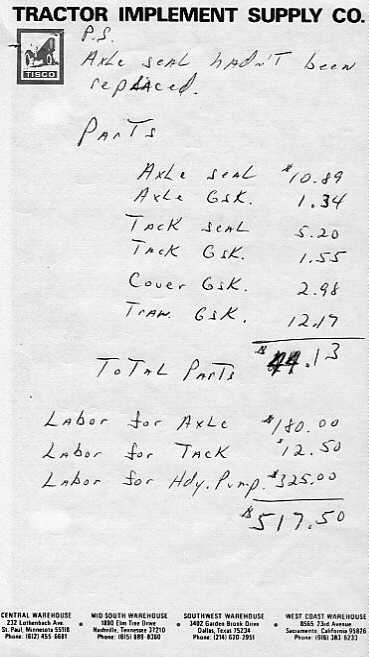 TRACTOR IMPLEMENT SUPPLY CO.
TISCO
P.S.
Axle seal hadn't been
replaced.
Parts
Axle seal $10.89
Axle Gsk. 1.34
Tack seal 5.20
Tack Gsk. 1.55
Cover Gsk. 2.98
Tran. Gsk. 12.17
Total Parts $44.13
Labor for Axle $180.00
Labor for Tack $12.50
Labor for Hdy. Pump. $325.00
$517.50
CENTRAL WAREHOUSE • MID SOUTH WAREHOUSE • SOUTHWEST WAREHOUSE • WEST COAST WAREHOUSE
232 Lothenbach Ave. 1890 Elm Tree Drive 3402 Garden Brook Drive 8565 23rd Avenue
St. Paul, Minnesota 55118 Nashville, Tennessee 37210 Dallas, Texas 75234 Sacramento, California 95826
Phone: (612) 455-6681 Phone: (615) 889-8360 Phone: (214) 620-2951 Phone: (916) 383-6233